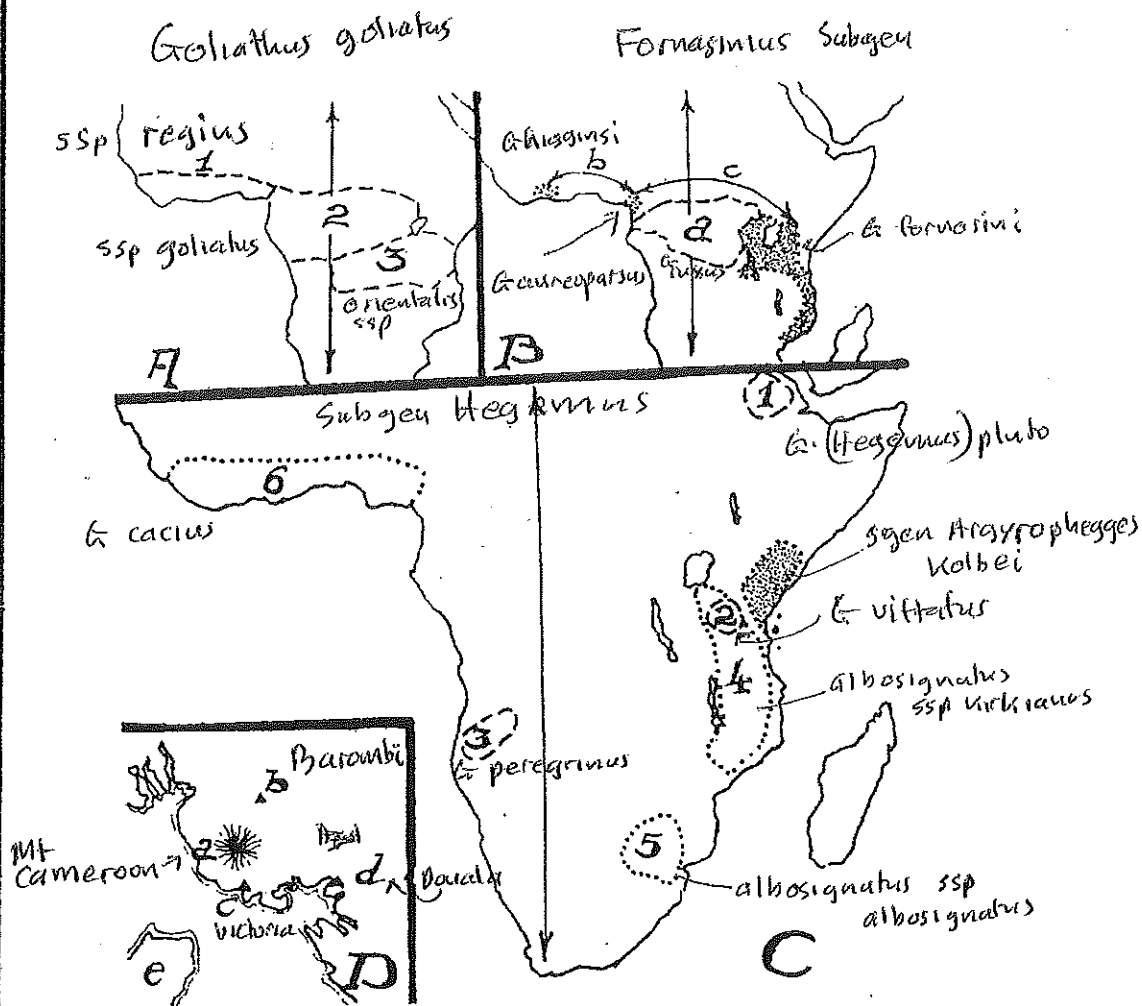 Goliathus goliatus
Fornasinius Subgen
ssp regius
1
2
ssp goliatus
3
orientalis
ssp
A
G higginsi
b
c
a
G fornasini
G aureoparsus
G russus
B
Subgen Hegemus
1
G. (Hegemus) pluto
6
G cacius
sgen Argyrophegges
Kolbei
2
G vittatus
4
albosignatus
ssp kirkianus
3
G peregrinus
5
albosignatus ssp
albosignatus
C
Barombi
b
a
Mt
Cameroon
d
Douala
c
Victoria
e
D